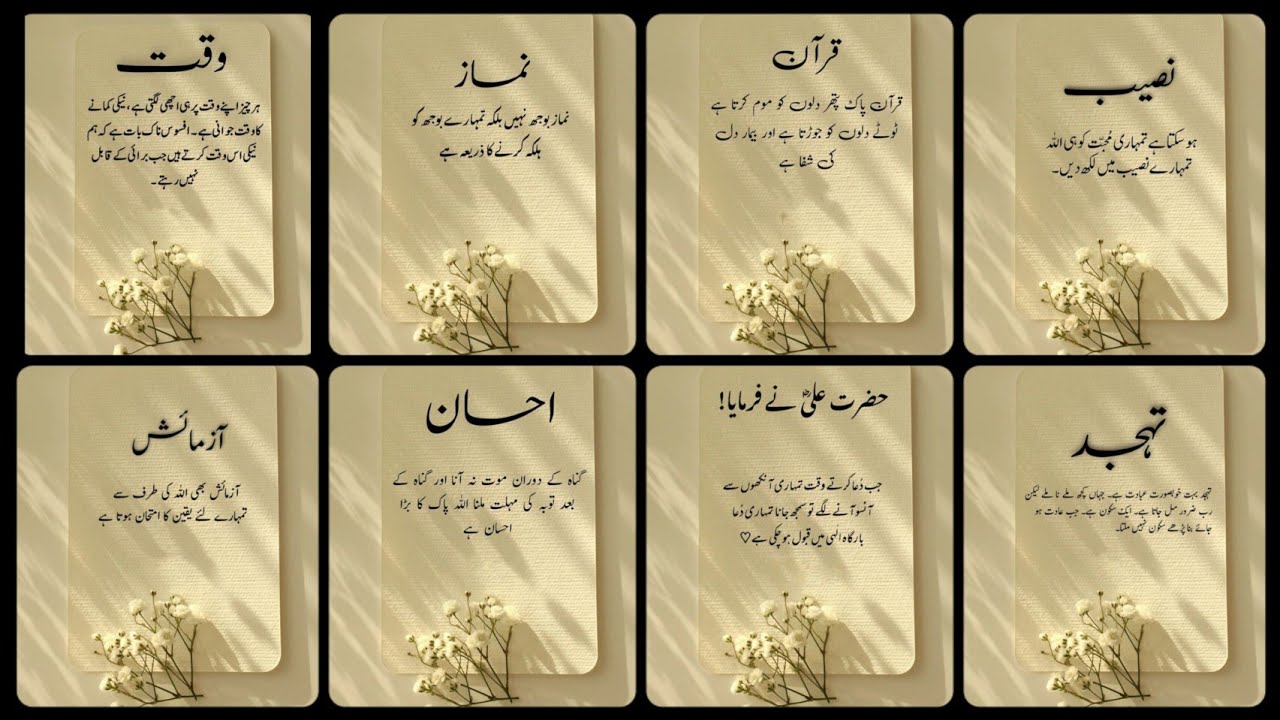 وقت
ہر چیز اپنے وقت پر ہی اچھی لگتی ہے، نیکی کمانے
کا وقت جوانی ہے۔ افسوس ناک بات ہے کہ ہم
نیکی اس وقت کرتے ہیں جب برائی کے قابل
نہیں رہتے۔
نماز
نماز بوجھ نہیں بلکہ تمہارے بوجھ کو
ہلکہ کرنے کا ذریعہ ہے
قرآن
قرآن پاک پتھر دلوں کو موم کرتا ہے
ٹوٹے دلوں کو جوڑتا ہے اور بیمار دل
کی شفا ہے
نصیب
ہو سکتا ہے تمہاری مُحبّت کو ہی اللہ
تمہارے نصیب میں لکھ دیں۔
آزمائش
آزمائش بھی اللہ کی طرف سے
تمہارے لئے یقین کا امتحان ہوتا ہے
احسان
گناہ کے دوران موت نہ آنا اور گناہ کے
بعد توبہ کی مہلت ملنا اللہ پاک کا بڑا
احسان ہے
حضرت علیؓ نے فرمایا!
جب دُعا کرتے وقت تمہاری آنکھوں سے
آنسو آنے لگے تو سمجھ جانا تمہاری دُعا
بارگاہ الٰہی میں قبول ہو چکی ہے♡
تہجد
تہجد بہت خوبصورت عبادت ہے۔ جہاں کچھ ملے نا ملے لیکن
رب ضرور مل جاتا ہے۔ ایک سکون ہے۔ جب عادت ہو
جائے بنا پڑھے سکون نہیں ملتا۔